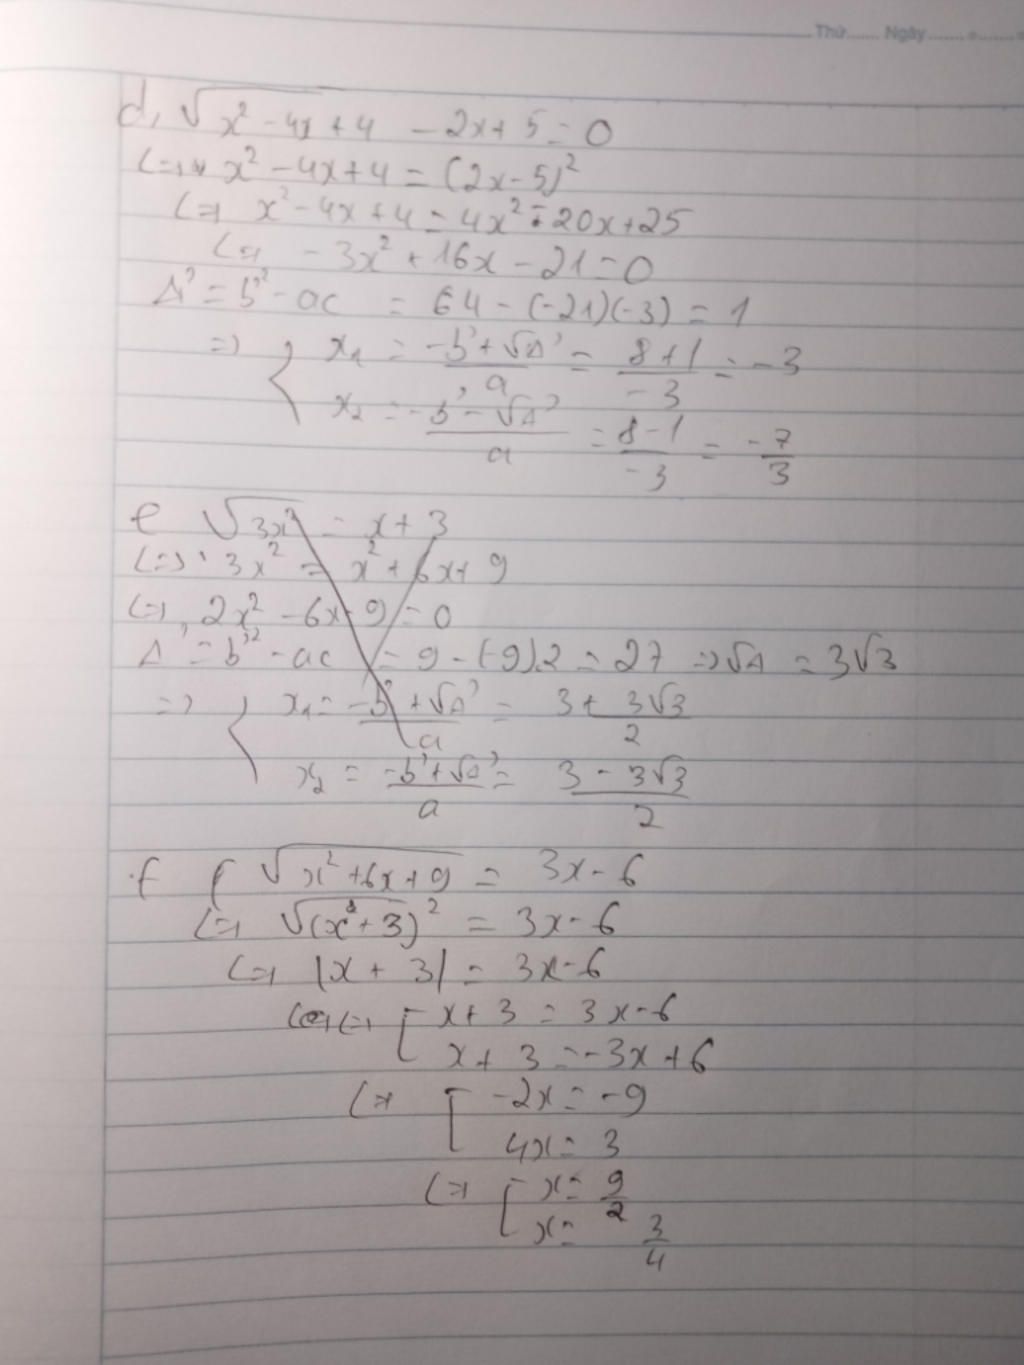 Thứ...... Ngày......
d, √(x² - 4x + 4) - 2x + 5 = 0
<=> x² - 4x + 4 = (2x - 5)²
<=> x² - 4x + 4 = 4x² - 20x + 25
<=> - 3x² + 16x - 21 = 0
Δ' = b'² - ac = 64 - (-21)(-3) = 1
=> { x₁ = (-b' + √Δ')/a = (8 + 1)/(-3) = -3
x₂ = (-b' - √Δ')/a = (8 - 1)/(-3) = -7/3
e √(3x²) = x + 3
<=> 3x² = x² + 6x + 9
<=> 2x² - 6x - 9 = 0
Δ' = b'² - ac = 9 - (-9).2 = 27 => √Δ = 3√3
=> { x₁ = (-b' + √Δ')/a = (3 + 3√3)/2
x₂ = (-b' + √Δ')/a = (3 - 3√3)/2
f √(x² + 6x + 9) = 3x - 6
<=> √(x + 3)² = 3x - 6
<=> |x + 3| = 3x - 6
<=> [ x + 3 = 3x - 6
x + 3 = -3x + 6
<=> [ -2x = -9
4x = 3
<=> [ x = 9/2
x = 3/4